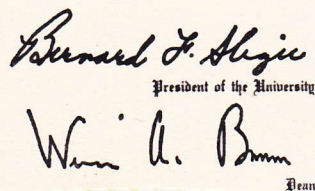 Bernard F. Sliger
President of the University
A.
Dean